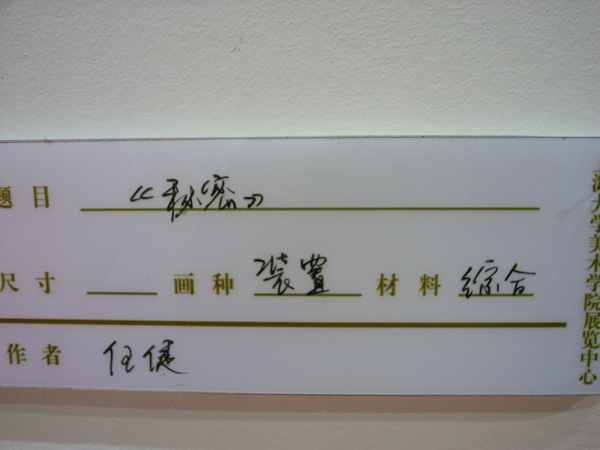 题目 《秘密》
尺寸 画种 装置 材料 综合
作者 任健
海大学美术学院展览中心